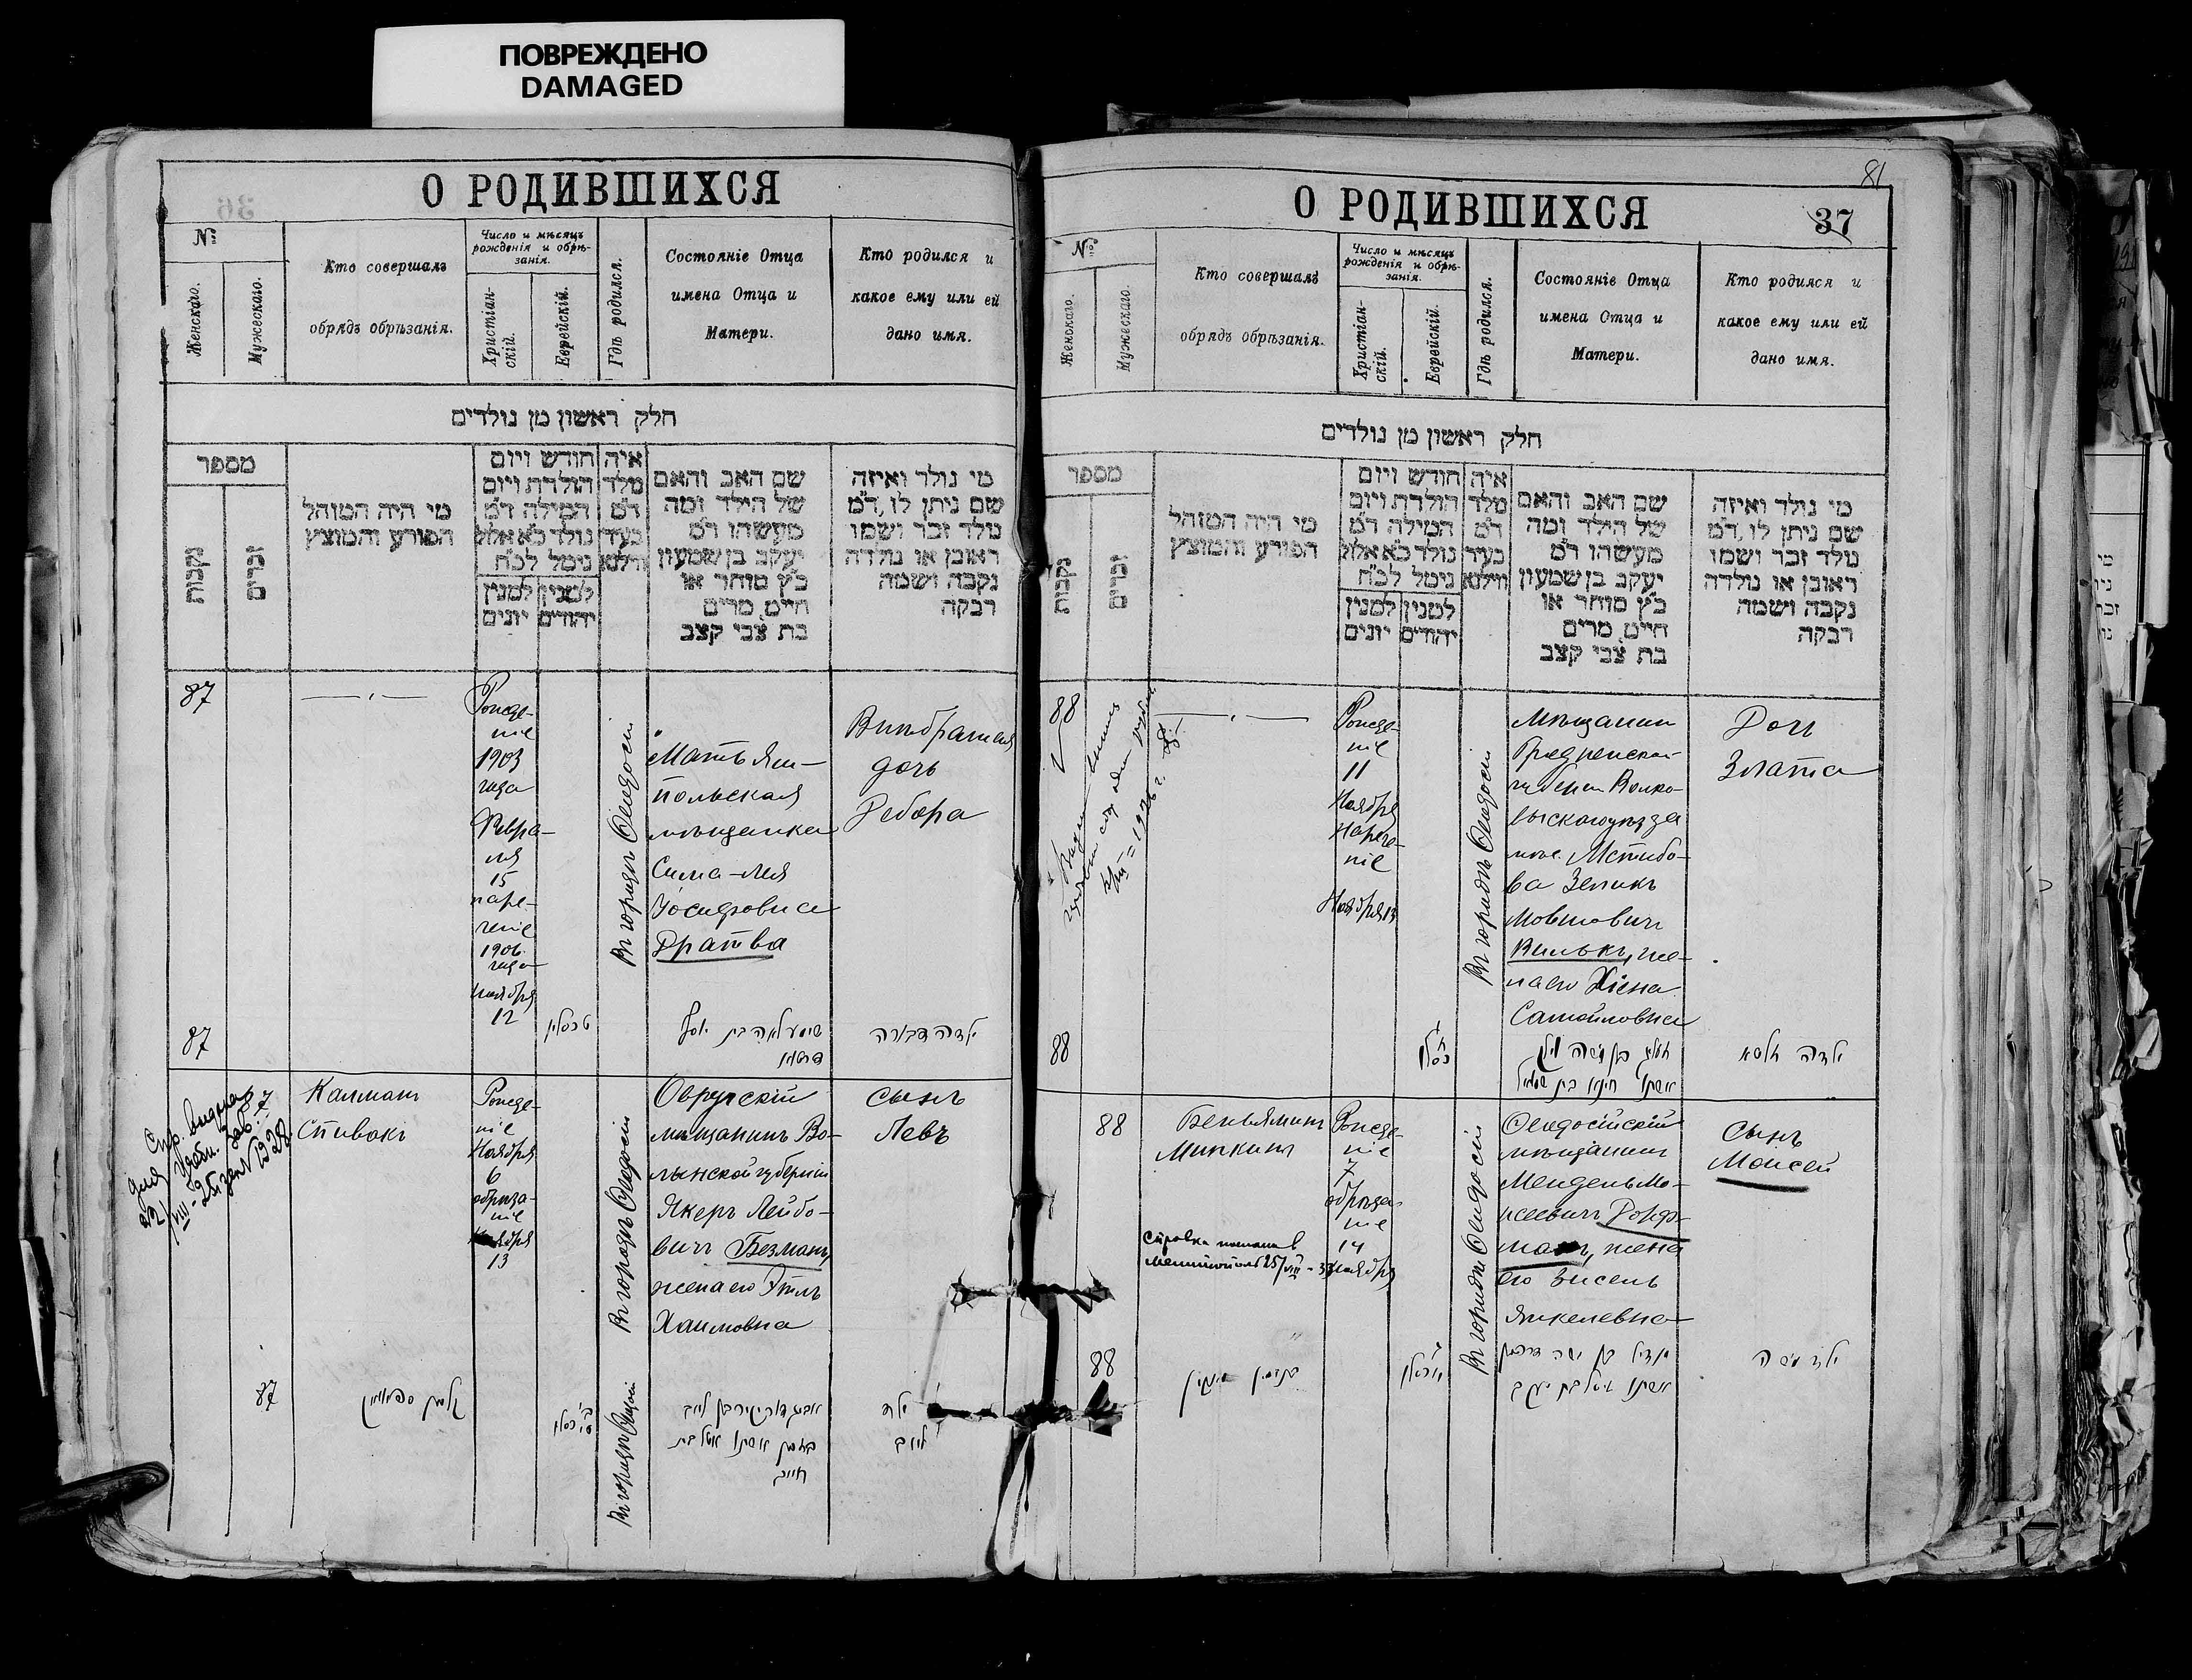 ПОВРЕЖДЕНО
DAMAGED
О РОДИВШИХСЯ
36
№
Женскаго.
Мужескаго.
Кто совершалъ
обрядъ обрѣзанія.
Число и мѣсяцъ
рожденія и обрѣ-
занія.
Христіан-
скій.
Еврейскій.
Гдѣ родился.
Состояніе Отца
имена Отца и
Матери.
Кто родился и
какое ему или ей
дано имя.
חלק ראשון מן נולדים
מספר
נקבות
זכרים
מי היה המוהל
הפורע והמוצץ
חודש ויום
הולדת ויום
המילה ד"מ
נולד כ"א אלול
נימל לכ"ח
למנין
יונים
למנין
יהודים
איה
מלד
ד"מ
בעיר
ווילנא
שם האב והאם
של הילד ומה
מעשהו ד"מ
יעקב בן שמעון
כ"ץ סוחר או
חייט, מרים
בת צבי קצב
מי נולד ואיזה
שם ניתן לו, ד"מ
נולד זכר ושמו
ראובן או נולדה
נקבה ושמה
רבקה
87
Рожде-
ніе
1903
года
Февра-
ля
15
наре-
ченіе
1906
года
Ноября
12
Въ городѣ Ѳеодосіи
Мать Ям-
польская
мѣщанка
Сима-Лея
Іосифовна
Дратва
Внѣбрачная
дочь
Дебора
87
שימע לאה בת יוסף
ילדה דבורה
87
Калманъ
Спивакъ
Рожде-
ніе
Ноября
6
обрѣза-
ніе
Ноября
13
Въ городѣ Ѳеодосіи
Овручскій
мѣщанинъ Во-
лынской губерніи
Якеръ Лейбо-
вичъ Безманъ,
жена его Этль
Хаимовна
сынъ
Левъ
87
Въ городѣ Ѳеодосіи
אשתו אטל בת
חיים
ילד
לייב
О РОДИВШИХСЯ
81
37
№
Женскаго.
Мужескаго.
Кто совершалъ
обрядъ обрѣзанія.
Число и мѣсяцъ
рожденія и обрѣ-
занія.
Христіан-
скій.
Еврейскій.
Гдѣ родился.
Состояніе Отца
имена Отца и
Матери.
Кто родился и
какое ему или ей
дано имя.
חלק ראשון מן נולדים
מספר
נקבות
זכרים
מי היה המוהל
הפורע והמוצץ
חודש ויום
הולדת ויום
המילה ד"מ
נולד כ"א אלול
נימל לכ"ח
למנין
יונים
למנין
יהודים
איה
מלד
ד"מ
בעיר
ווילנא
שם האב והאם
של הילד ומה
מעשהו ד"מ
יעקב בן שמעון
כ"ץ סוחר או
חייט, מרים
בת צבי קצב
מי נולד ואיזה
שם ניתן לו, ד"מ
נולד זכר ושמו
ראובן או נולדה
נקבה ושמה
רבקה
88
Рожде-
ніе
11
Ноября
Нарече-
ніе
Ноября 13
Въ городѣ Ѳеодосіи
Мѣщанин
Гродненской
губерніи Волко-
выскаго уѣзда
Мстибо-
ва Зеликъ
Мовшовичъ
Вилькъ, же-
на его Хіена
Самойловна
Дочь
Злата
88
אשתו חינא בת שמואל
ילדה זלטא
88
Беньяминъ
Минкинъ
Рожде-
ніе
7
обрѣза-
ніе
14
Ноября
Справка
Въ городѣ Ѳеодосіи
Ѳеодосійскій
мѣщанинъ
Мендель Мо-
исеевичъ
жена
его Зисель
Янкелевна
сынъ
Моисей
88
בנימין מינקין
אשתו זיסל בת יעקב
ילד משה